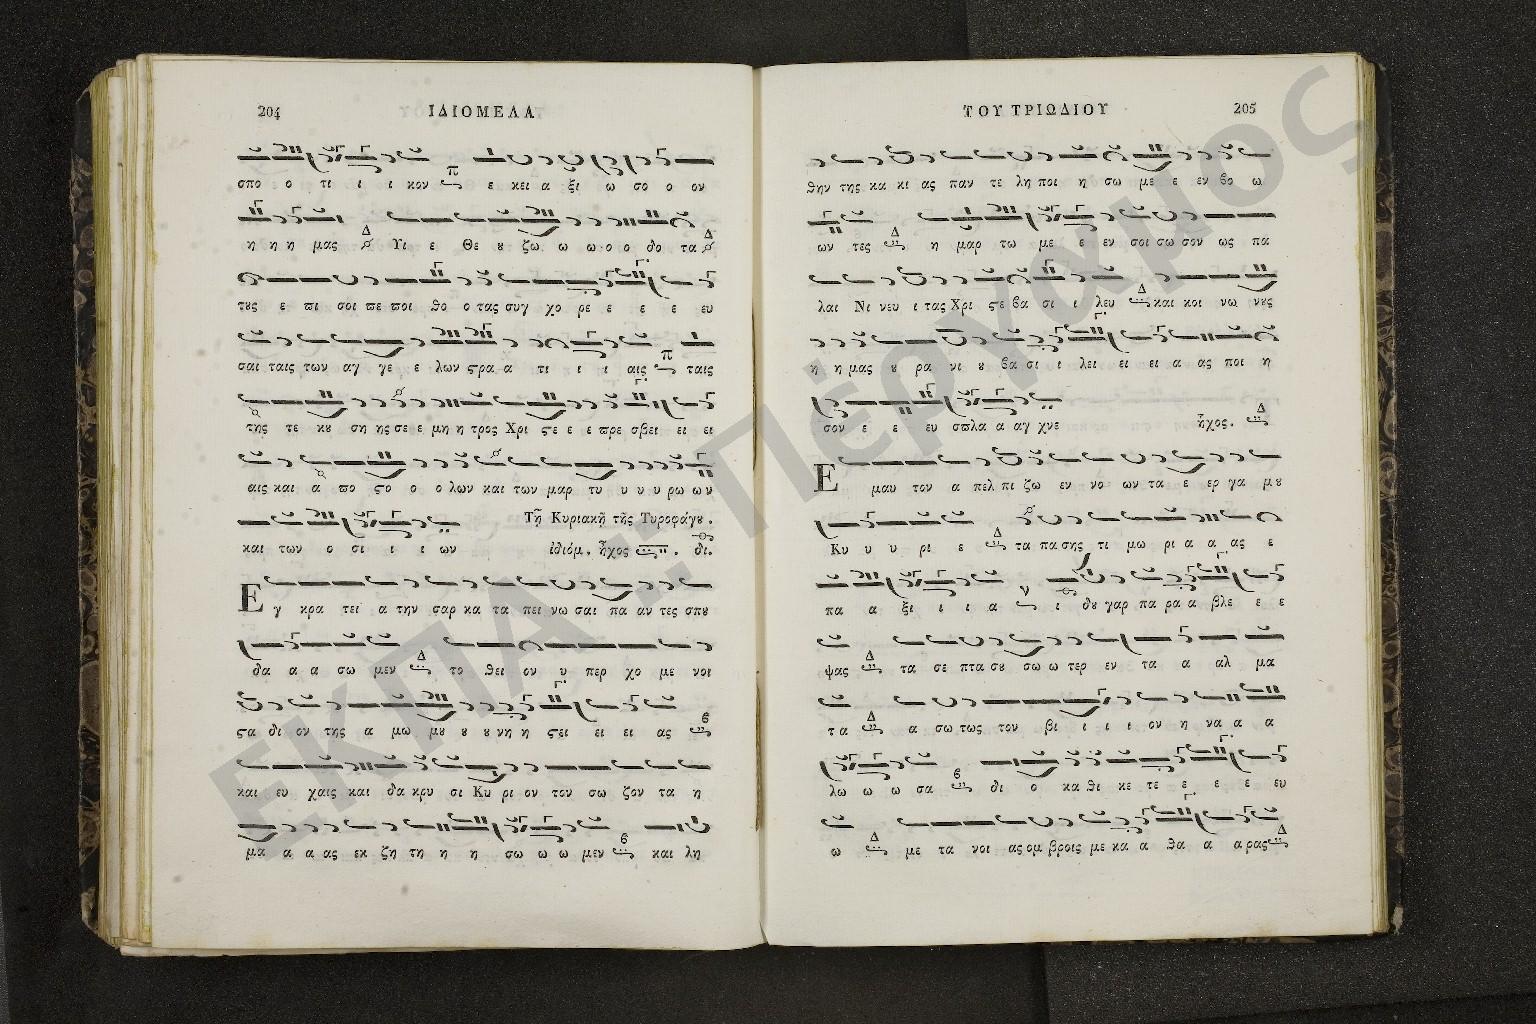 204 ΙΔΙΟΜΕΛΑ
σπο ο τι ι ι κον ε κει α ξι ω σο ο ον
η η η μας Υι ε Θε ȣ ζω ω ω ο ο δο τα
τȣς ε πι σοι πε ποι θο ο τας συγ χο ρε ε ε ε ευ
σαι ταις των αγ γε ε λων ϛρα α τι ι ι αις ταις
της τε κυ ση ης σε ε μη η τρος Χρι ϛε ε ε πρε σβει ει ει
αις και α πο ϛο ο ο λων και των μαρ τυ υ υ υ ρω ων
και των ο σι ι ι ων
Τῇ Κυριακῇ τῆς Τυροφάγȣ.
ἰδιόμ. ἦχος δι.
Εγ κρα τει α την σαρ κα τα πει νω σαι πα αν τες σπȣ
δα α α σω μεν το θει ον υ περ χο με νοι
ϛα δι ον της α μω μȣ ȣ ȣ νη η ϛει ει ει ας
και ευ χαις και δα κρυ σι Κυ ρι ον τον σω ζον τα η
μα α α ας εκ ζη τη η η σω ω ω μεν και λη
ΤΟΥ ΤΡΙΩΔΙΟΥ 205
θην της κα κι ας παν τε λη ποι η σω με ε εν βο ω
ων τες η μαρ τω με ε εν σοι σω σον ως πα
λαι Νι νευ ι τας Χρι ϛε βα σι ι λευ και κοι νω νȣς
η η μας ȣ ρα νι ȣ βα σι ι λει ει ει α ας ποι η
σον ε ε ευ σπλα α αγ χνε ἦχος.
Ε μαυ τον α πελ πι ζω εν νο ων τα ε ερ γα μȣ
Κυ υ υ ρι ε τα πα σης τι μω ρι α α ας ε
πα α ξι ι ι α ι δȣ γαρ πα ρα α βλε ε ε
ψας τα σε πτα σȣ σω ω τερ εν τα α αλ μα
τα α σω τως τον βι ι ι ον η να α α
λω ω ω σα δι ο κα θι κε τε ε ε ε ευ
ω με τα νοι ας ομ βροις με κα α θα α α ρας
ΕΚΠΑ :: Πέργαμος